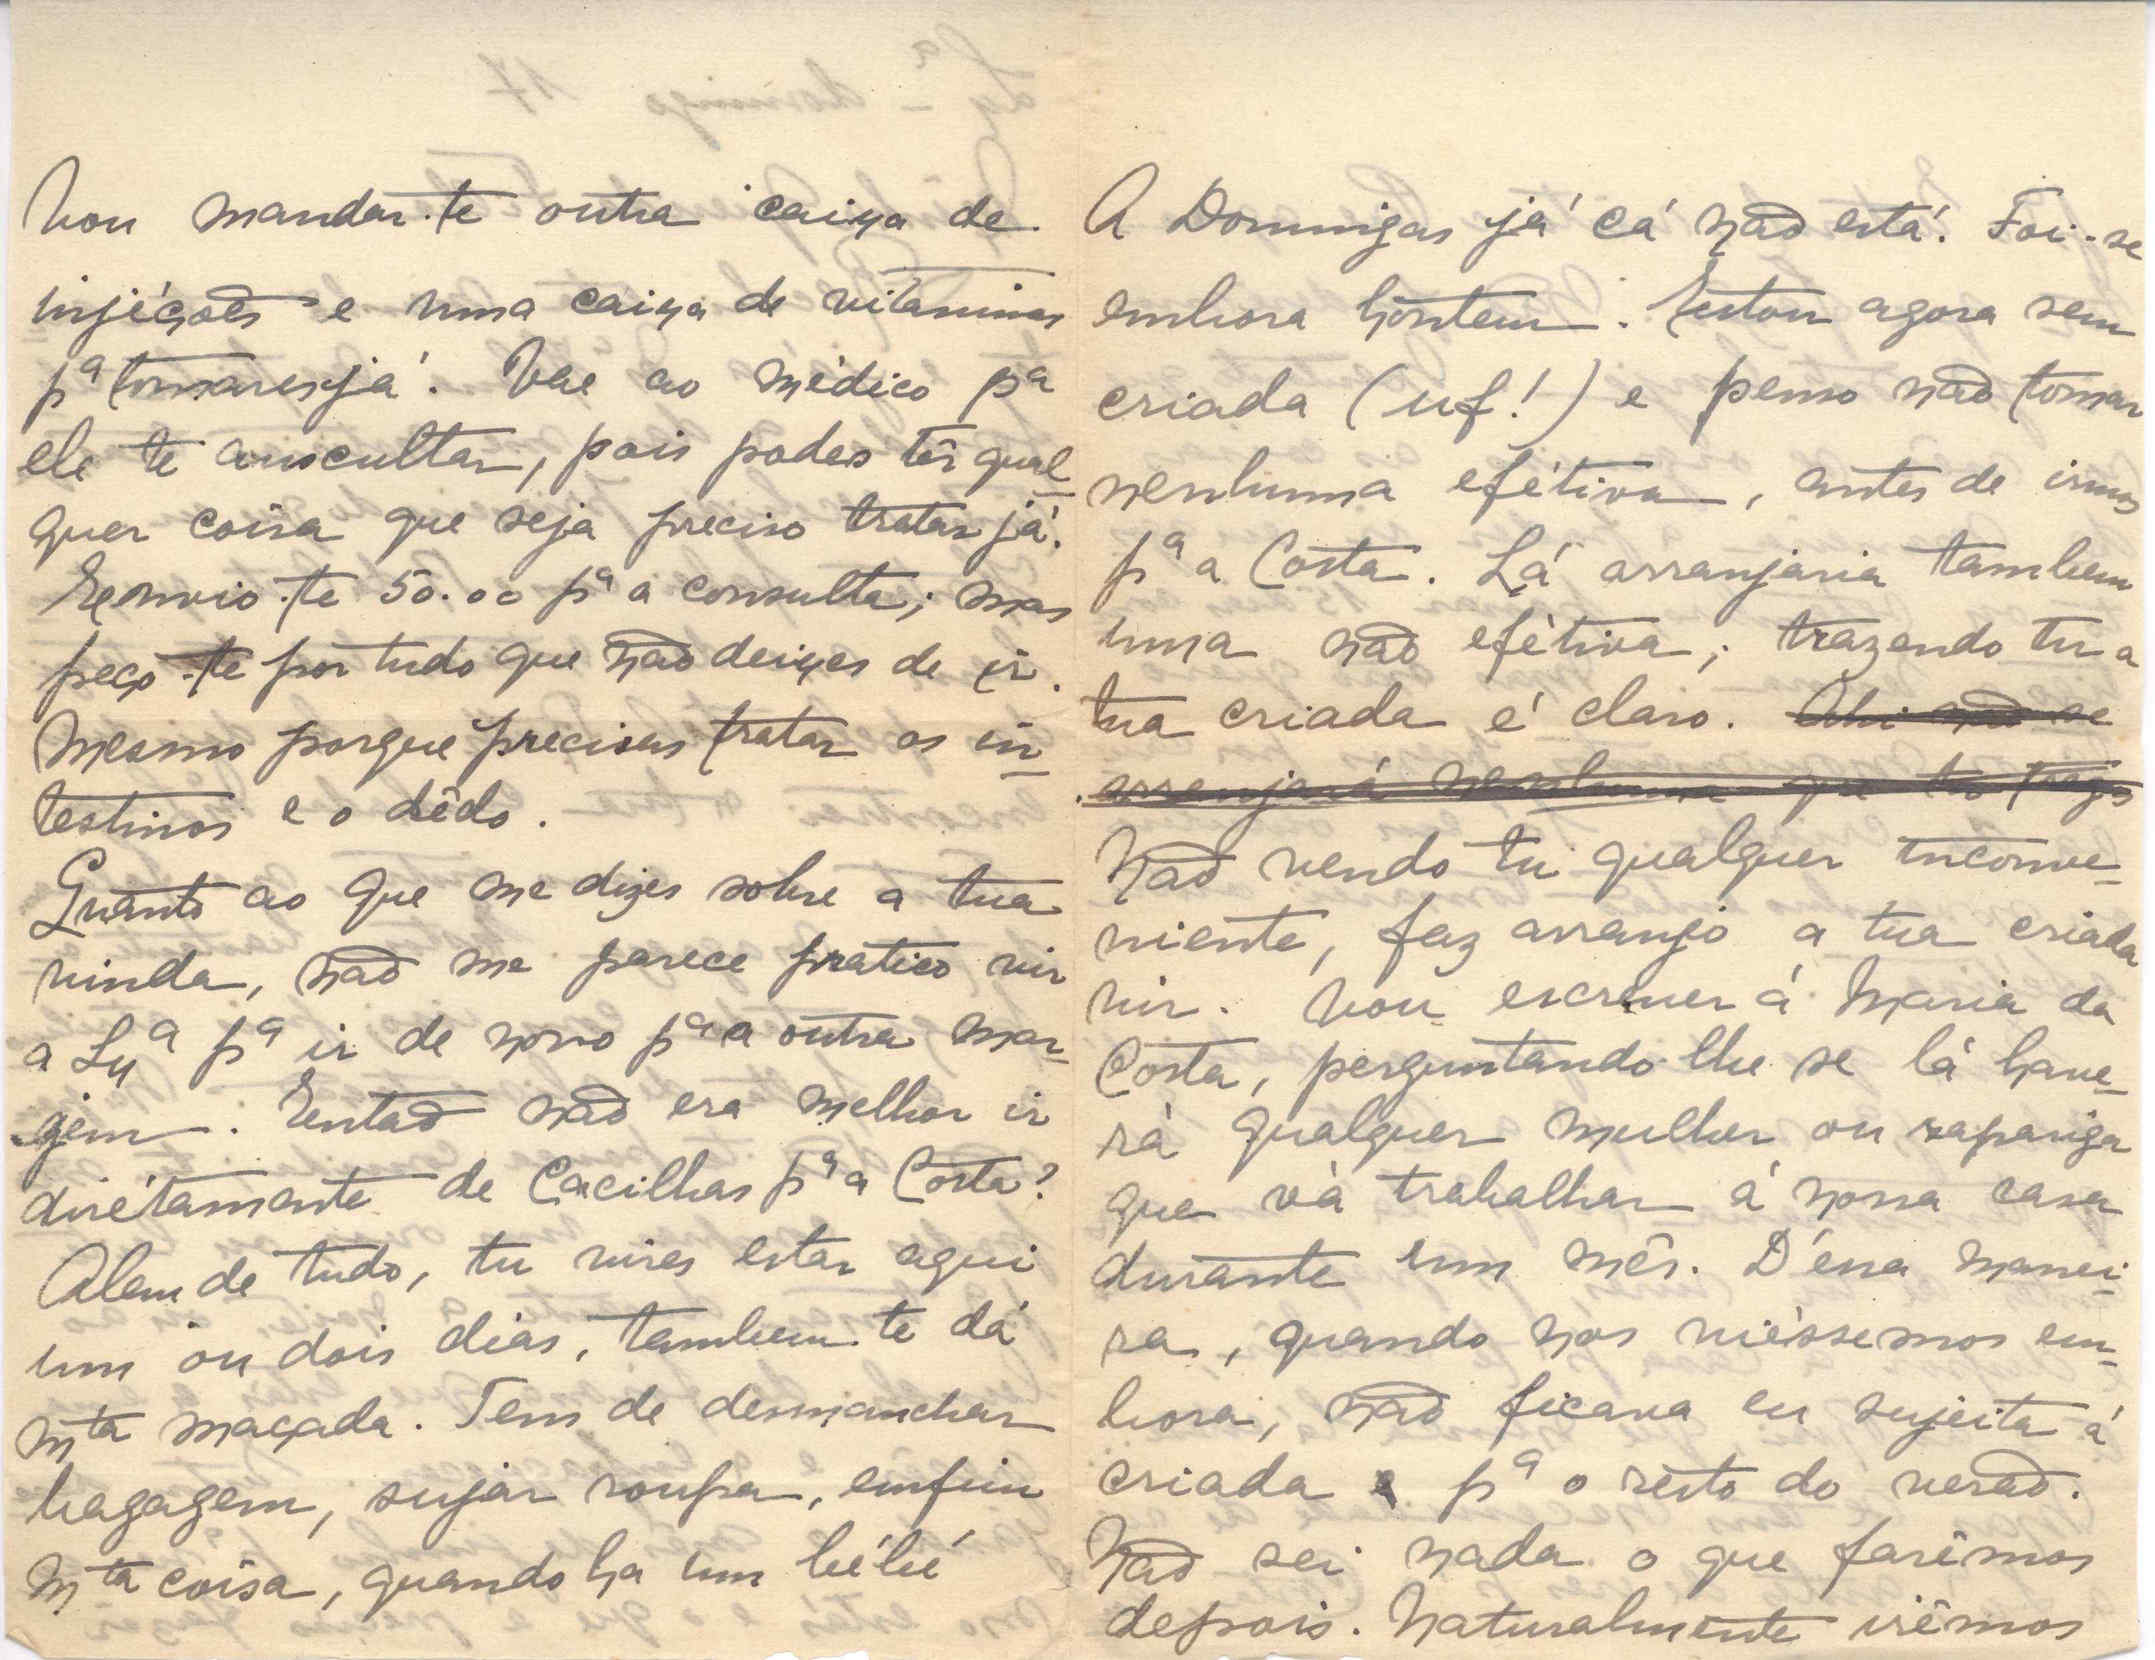 Vou mandar-te outra caixa de
injéções e uma caixa de vitaminas
pª tomares já. Vae ao médico pª
ele te auscultar, pois podes têr qual-
quer coisa que seja preciso tratar já.
Envio-te 50.00 pª a consulta; mas
peço-te por tudo que não deixes de ir.
Mesmo porque precisas tratar os in-
testinos e o dêdo.
Quanto ao que me dizes sobre a tua
vinda, não me parece pratico vir
a Lxª pª ir de novo pª a outra mar-
gem. Então não era melhor ir
dirétamente de Cacilhas pª a Costa?
Alem de tudo, tu vires estar aqui
um ou dois dias, tambem te dá
mta maçada. Tens de desmanchar
bagagem, sujar roupa, emfim
mta coisa, quando ha um bébé
A Domingas já cá não está. Foi-se
embora hontem. Estou agora sem
criada (uf!) e penso não tomar
nenhuma efétiva, antes de irmos
pª a Costa. Lá arranjaria tambem
uma não efétiva; trazendo tu a
tua criada é claro. Ahi não se
arranjará nenhuma que tu tragas
Não vendo tu qualquer inconve-
niente, faz arranjo a tua criada
vir. Vou escrever á Maria da
Costa, perguntando-lhe se lá have-
rá qualquer mulher ou rapariga
que vá trabalhar á nossa casa
durante um mês. D'éssa manei-
ra, quando nos viéssemos em-
bora, não ficava eu sujeita á
criada pª o resto do verão.
Não sei nada o que farêmos
depois. Naturalmente irêmos